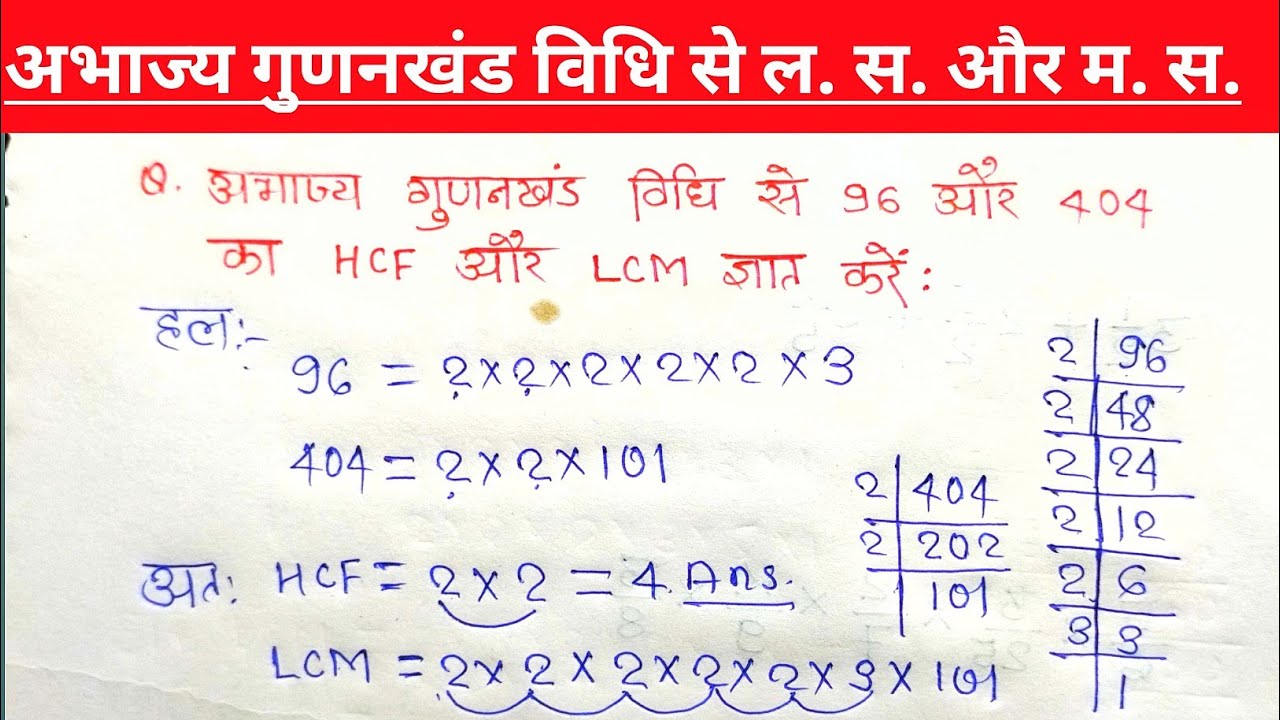 अभाज्य गुणनखंड विधि से ल. स. और म. स.
Q. अभाज्य गुणनखंड विधि से 96 और 404
का HCF और LCM ज्ञात करें:
हल:-
96 = 2×2×2×2×2×3
404 = 2×2×101
अत: HCF = 2×2 = 4 Ans.
LCM = 2×2×2×2×2×3×101
2 | 404
2 | 202
101
2 | 96
2 | 48
2 | 24
2 | 12
2 | 6
3 | 3
1